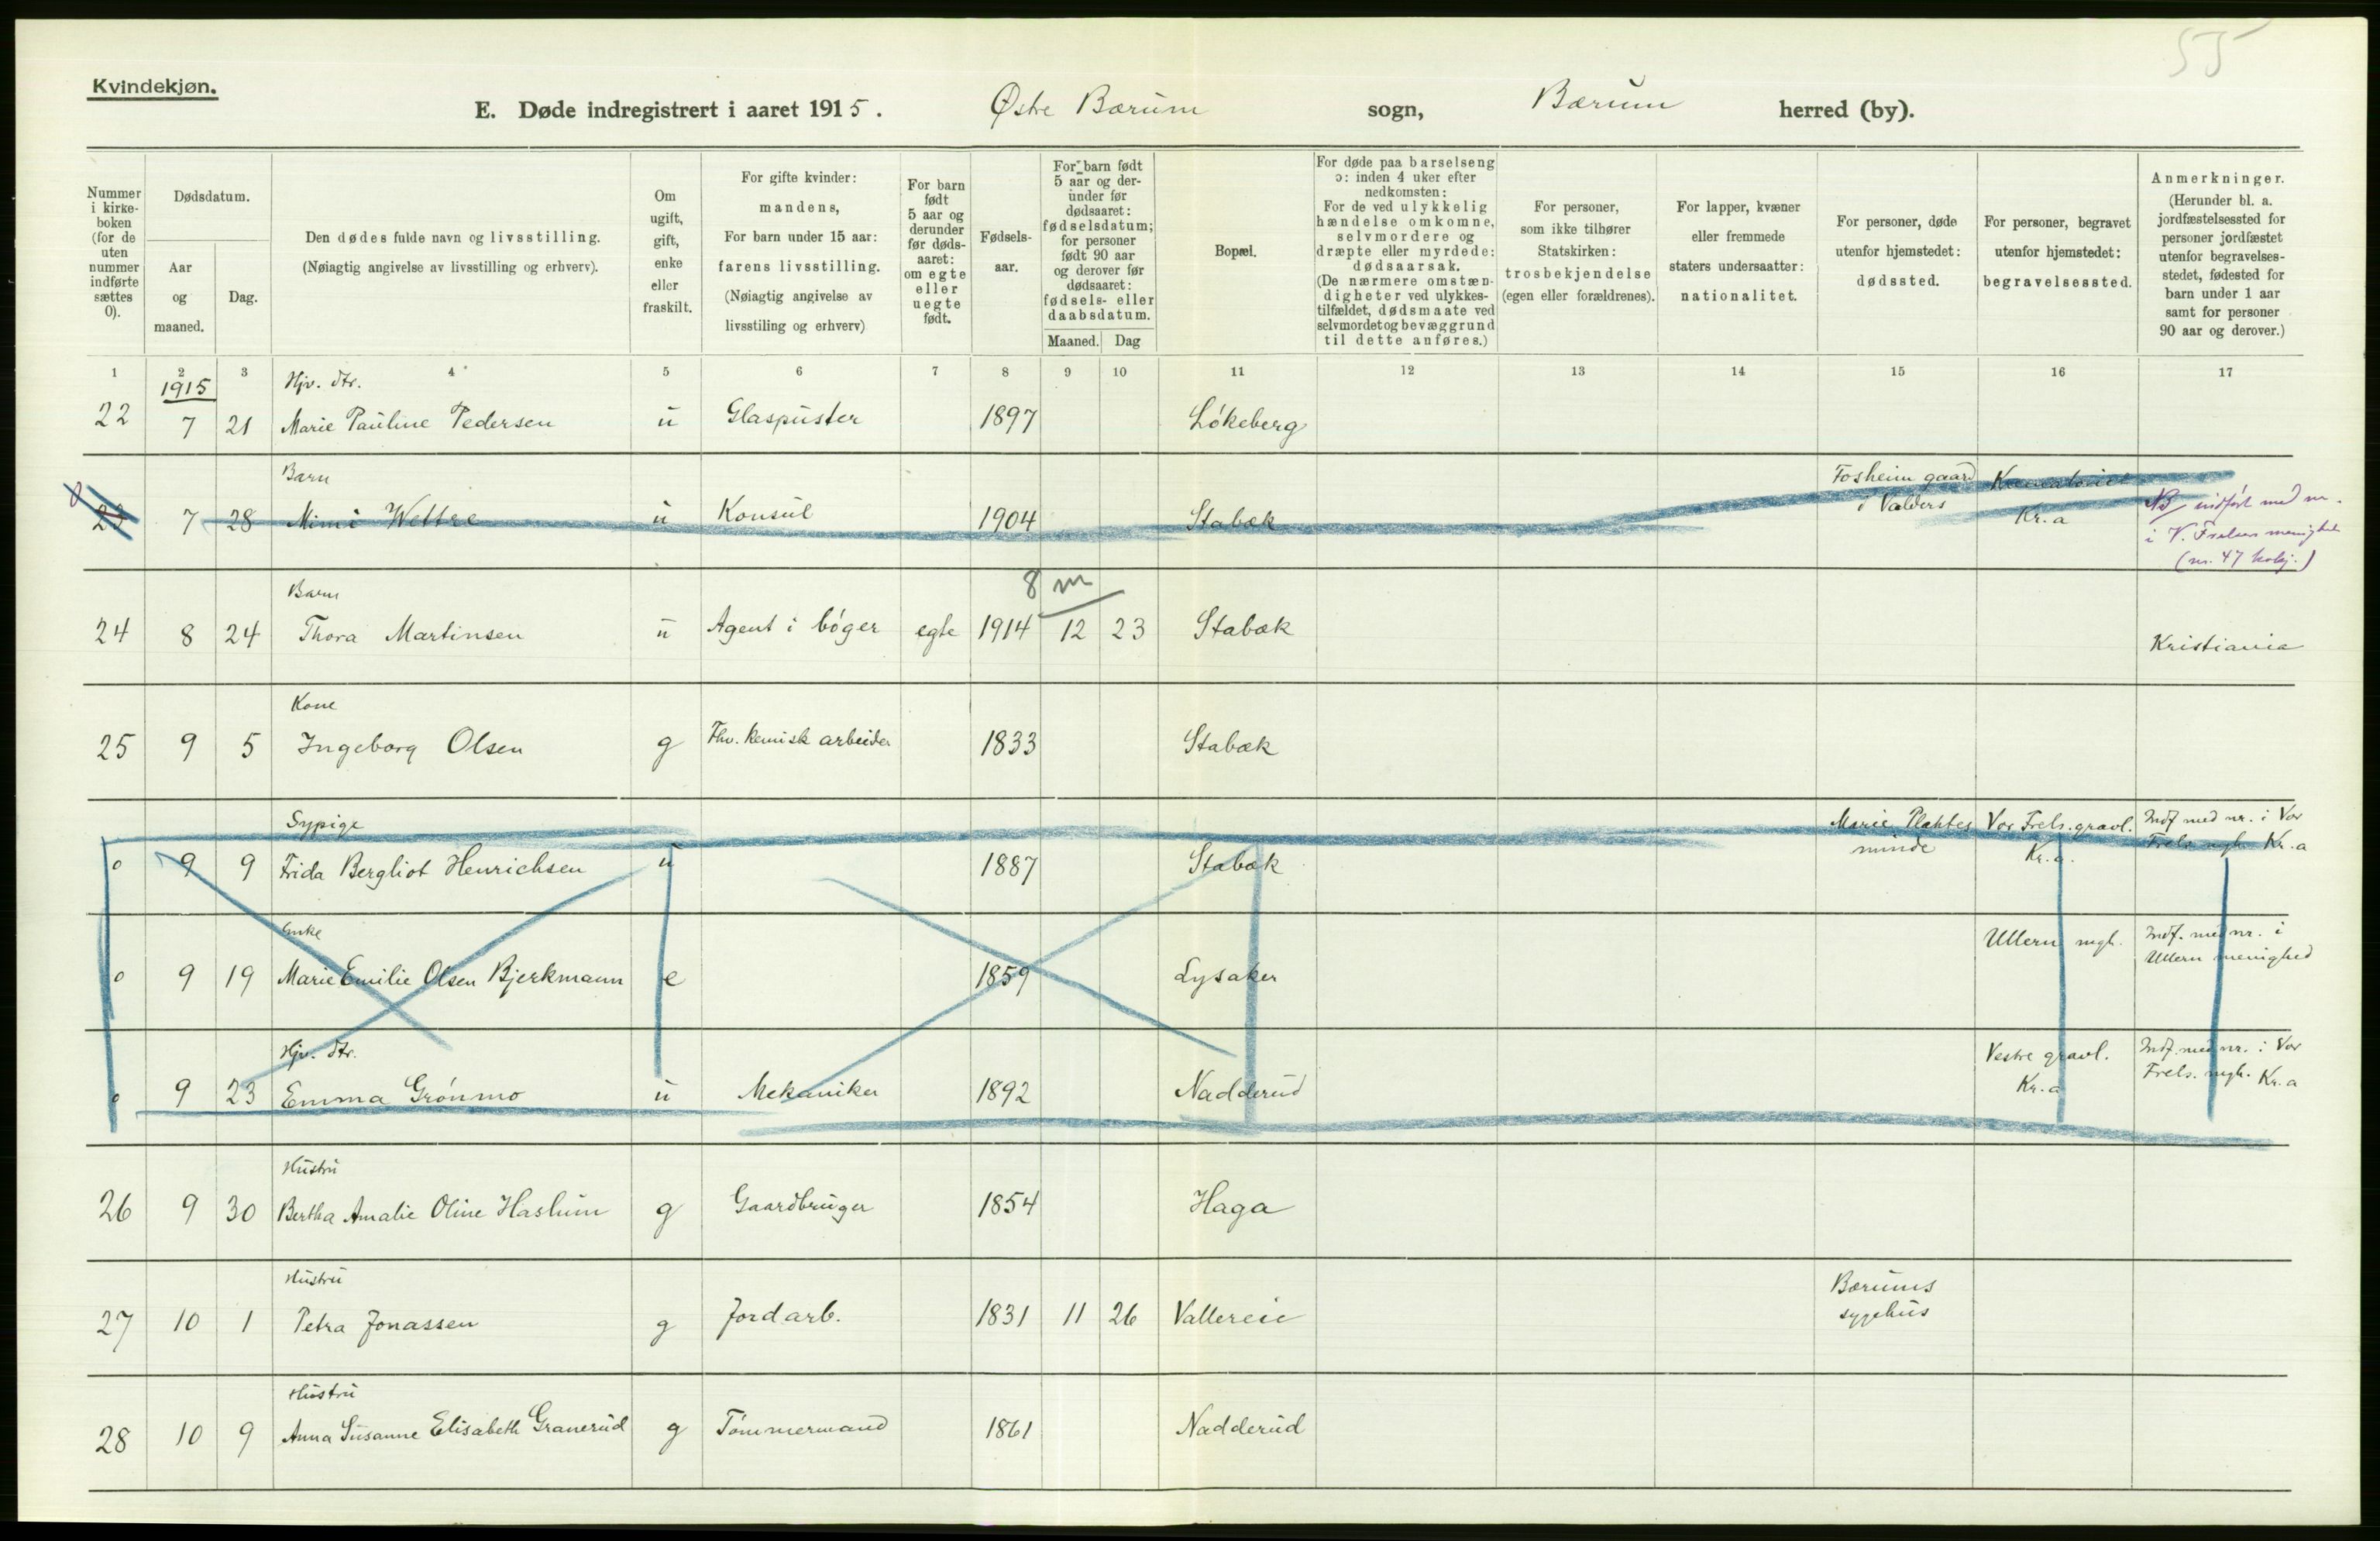 55
Kvindekjøn.
E. Døde indregistrert i aaret 1915. Østre Bærum sogn, Bærum herred (by).
Nummer i kirke- boken (for de uten nummer indførte sættes 0).
Dødsdatum.
Aar og maaned.
Dag.
Den dødes fulde navn og livsstilling.
(Nøiagtig angivelse av livsstilling og erhverv).
Om ugift, gift, enke eller fraskilt.
For gifte kvinder: mandens,
For barn under 15 aar: farens livsstilling.
(Nøiagtig angivelse av livsstiling og erhverv)
For barn født 5 aar og derunder før døds- aaret: om egte eller uegte født.
Fødsels- aar.
For barn født 5 aar og der- under før dødsaaret: fødselsdatum; for personer født 90 aar og derover før dødsaaret: fødsels- eller daabsdatum.
Maaned. Dag
Bopæl.
For døde paa barselseng ɔ: inden 4 uker efter nedkomsten:
For de ved ulykkelig hændelse omkomne, selvmordere og dræpte eller myrdede: dødsaarsak.
(De nærmere omstæn- digheter ved ulykkes- tilfældet, dødsmaate ved selvmordet og bevæggrund til dette anføres.)
For personer, som ikke tilhører Statskirken: trosbekjendelse (egen eller forældrenes).
For lapper, kvæner eller fremmede staters undersaatter: nationalitet.
For personer, døde utenfor hjemstedet: dødssted.
For personer, begravet utenfor hjemstedet: begravelsessted.
Anmerkninger.
(Herunder bl. a. jordfæstelsessted for personer jordfæstet utenfor begravelses- stedet, fødested for barn under 1 aar samt for personer 90 aar og derover.)
1 2 3 4 5 6 7 8 9 10 11 12 13 14 15 16 17
1915 Hjv. dtr.
22 7 21 Marie Pauline Pedersen u Glaspuster 1897 Løkeberg
Barn Fosheim gaard Krematoriet
0 23 7 28 Mimi Wettre u Konsul 1904 Stabæk i Valders Kr.a NB indført med nr.
i V. Frelsers menighet
(nr. 47 kvkj.)
8 m
Barn
24 8 24 Thora Martinsen u Agent i bøger egte 1914 12 23 Stabæk Kristiania
Kone
25 9 5 Ingeborg Olsen g Fhv. kemisk arbeider 1833 Stabæk
Sypige Marie Plahtes Vor Frels. gravl. Indf med nr. i Vor
0 9 9 Frida Bergliot Henrichsen u 1887 Stabæk minde Kr.a. Frels. mgh. Kr.a
Enke Ullern mgh. Indf. med nr. i
0 9 19 Marie Emilie Olsen Bjerkmann e 1859 Lysaker Ullern menighed
Hjv. dtr. Vestre gravl. Indf. med nr. i Vor
0 9 23 Emma Grønmo u Mekaniker 1892 Nadderud Kr.a Frels. mgh. Kr.a
Hustru
26 9 30 Bertha Amalie Oline Haslum g Gaardbruger 1854 Haga
Hustru Bærums
27 10 1 Petra Jonassen g Jordarb. 1831 11 26 Vallereie sygehus
Hustru
28 10 9 Anna Susanne Elisabeth Granerud g Tømmermand 1861 Nadderud